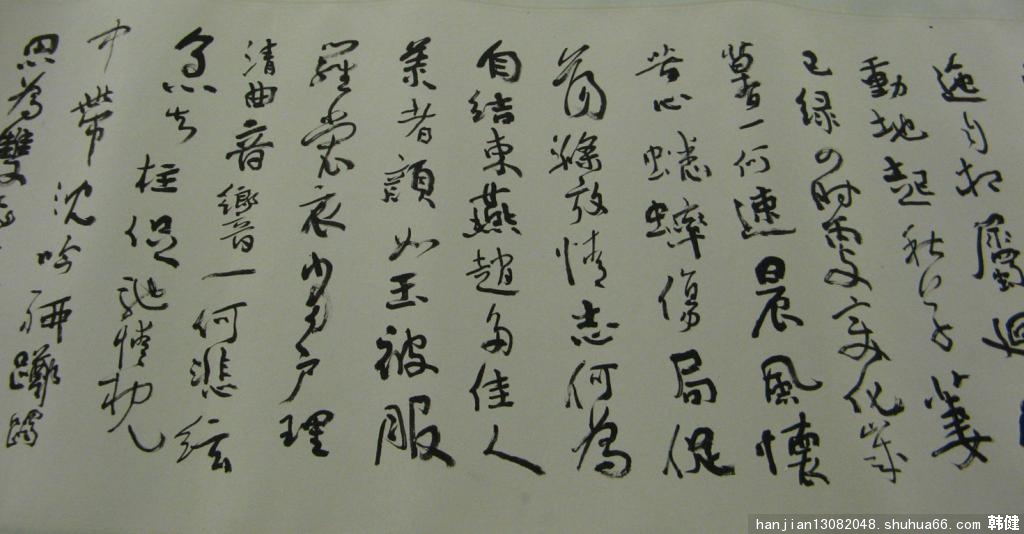 迤自相屬迴
動地起秋草萋
已緑四时更变化歲
暮一何速晨風懷
苦心蟋蟀傷局促
蕩滌放情志何為
自结束燕趙多佳人
美者顔如玉被服
羅裳衣當户理
清曲音響一何悲絃
急知柱促馳情
巾帶沈吟聊躑躅
思為雙
hanjian13082048.shuhua66.com 韩健